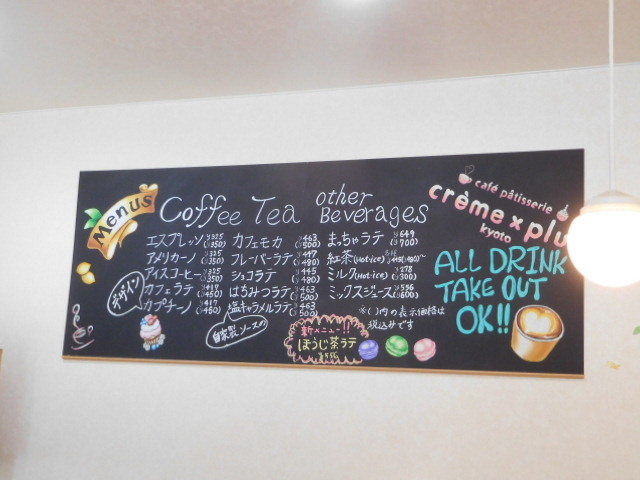 Menus
Coffee Tea other Beverages
エスプレッソ ¥325 (¥350)
アメリカーノ ¥325 (¥350)
アイスコーヒー ¥325 (¥350)
カフェラテ ¥417 (¥450)
カプチーノ ¥417 (¥450)
デザイン
カフェモカ ¥463 (¥500)
フレーバーラテ ¥447 (¥480)
ショコラテ ¥445 (¥480)
はちみつラテ ¥463 (¥500)
塩キャラメルラテ ¥463 (¥500)
自家製ソースの
まっちゃラテ ¥649 (¥700)
紅茶(Hot・ice)
ミルク(Hot・ice) ¥278 (¥300)
ミックスジュース ¥556 (¥600)
※( )内の表示価格は
税込みです
新メニュー!!
ほうじ茶ラテ
café pâtisserie
crème × plu
kyoto
ALL DRINK
TAKE OUT
OK!!